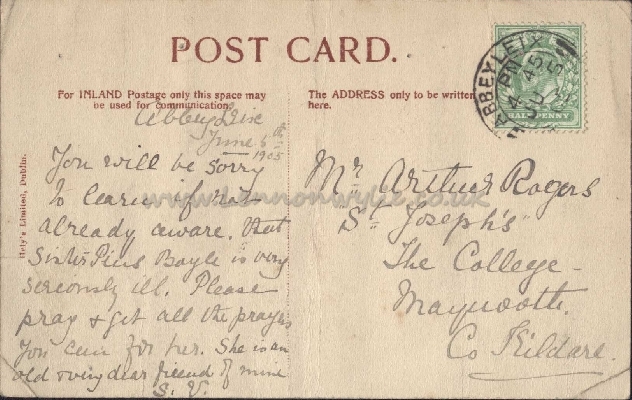 POST CARD.
For INLAND Postage only this space may
be used for communication.
The ADDRESS only to be written
here.
Abbeyleix
June 6th
1905
You will be sorry
to learn if not
already aware, that
Sister Pius Boyle is very
seriously ill. Please
pray & get all the prayers
you can for her. She is an
old & very dear friend of mine
S. V.
Mr Arthur Rogers
St Joseph's
The College
Maynooth.
Co Kildare.
Hely's Limited, Dublin.
ABBEYLEIX
4 45 PM
JU
5
HALFPENNY
www.lennonwylie.co.uk